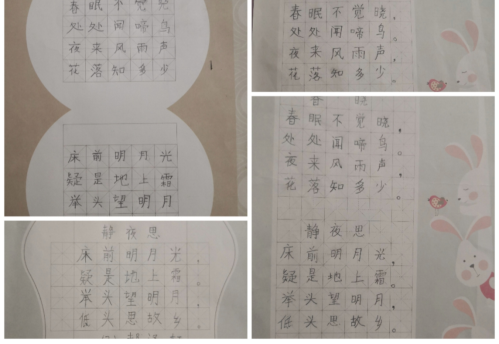 春眠不觉晓
处处闻啼鸟
夜来风雨声
花落知多少
床前明月光
疑是地上霜
举头望明月
静夜思
床前明月光,
疑是地上霜。
举头望明月,
低头思故乡。
春眠不觉晓,
处处闻啼鸟。
夜来风雨声,
花落知多少。
春晓
春眠不觉晓,
处处闻啼鸟。
夜来风雨声,
花落知多少。
静夜思
床前明月光,
疑是地上霜。
举头望明月,
低头思故乡。